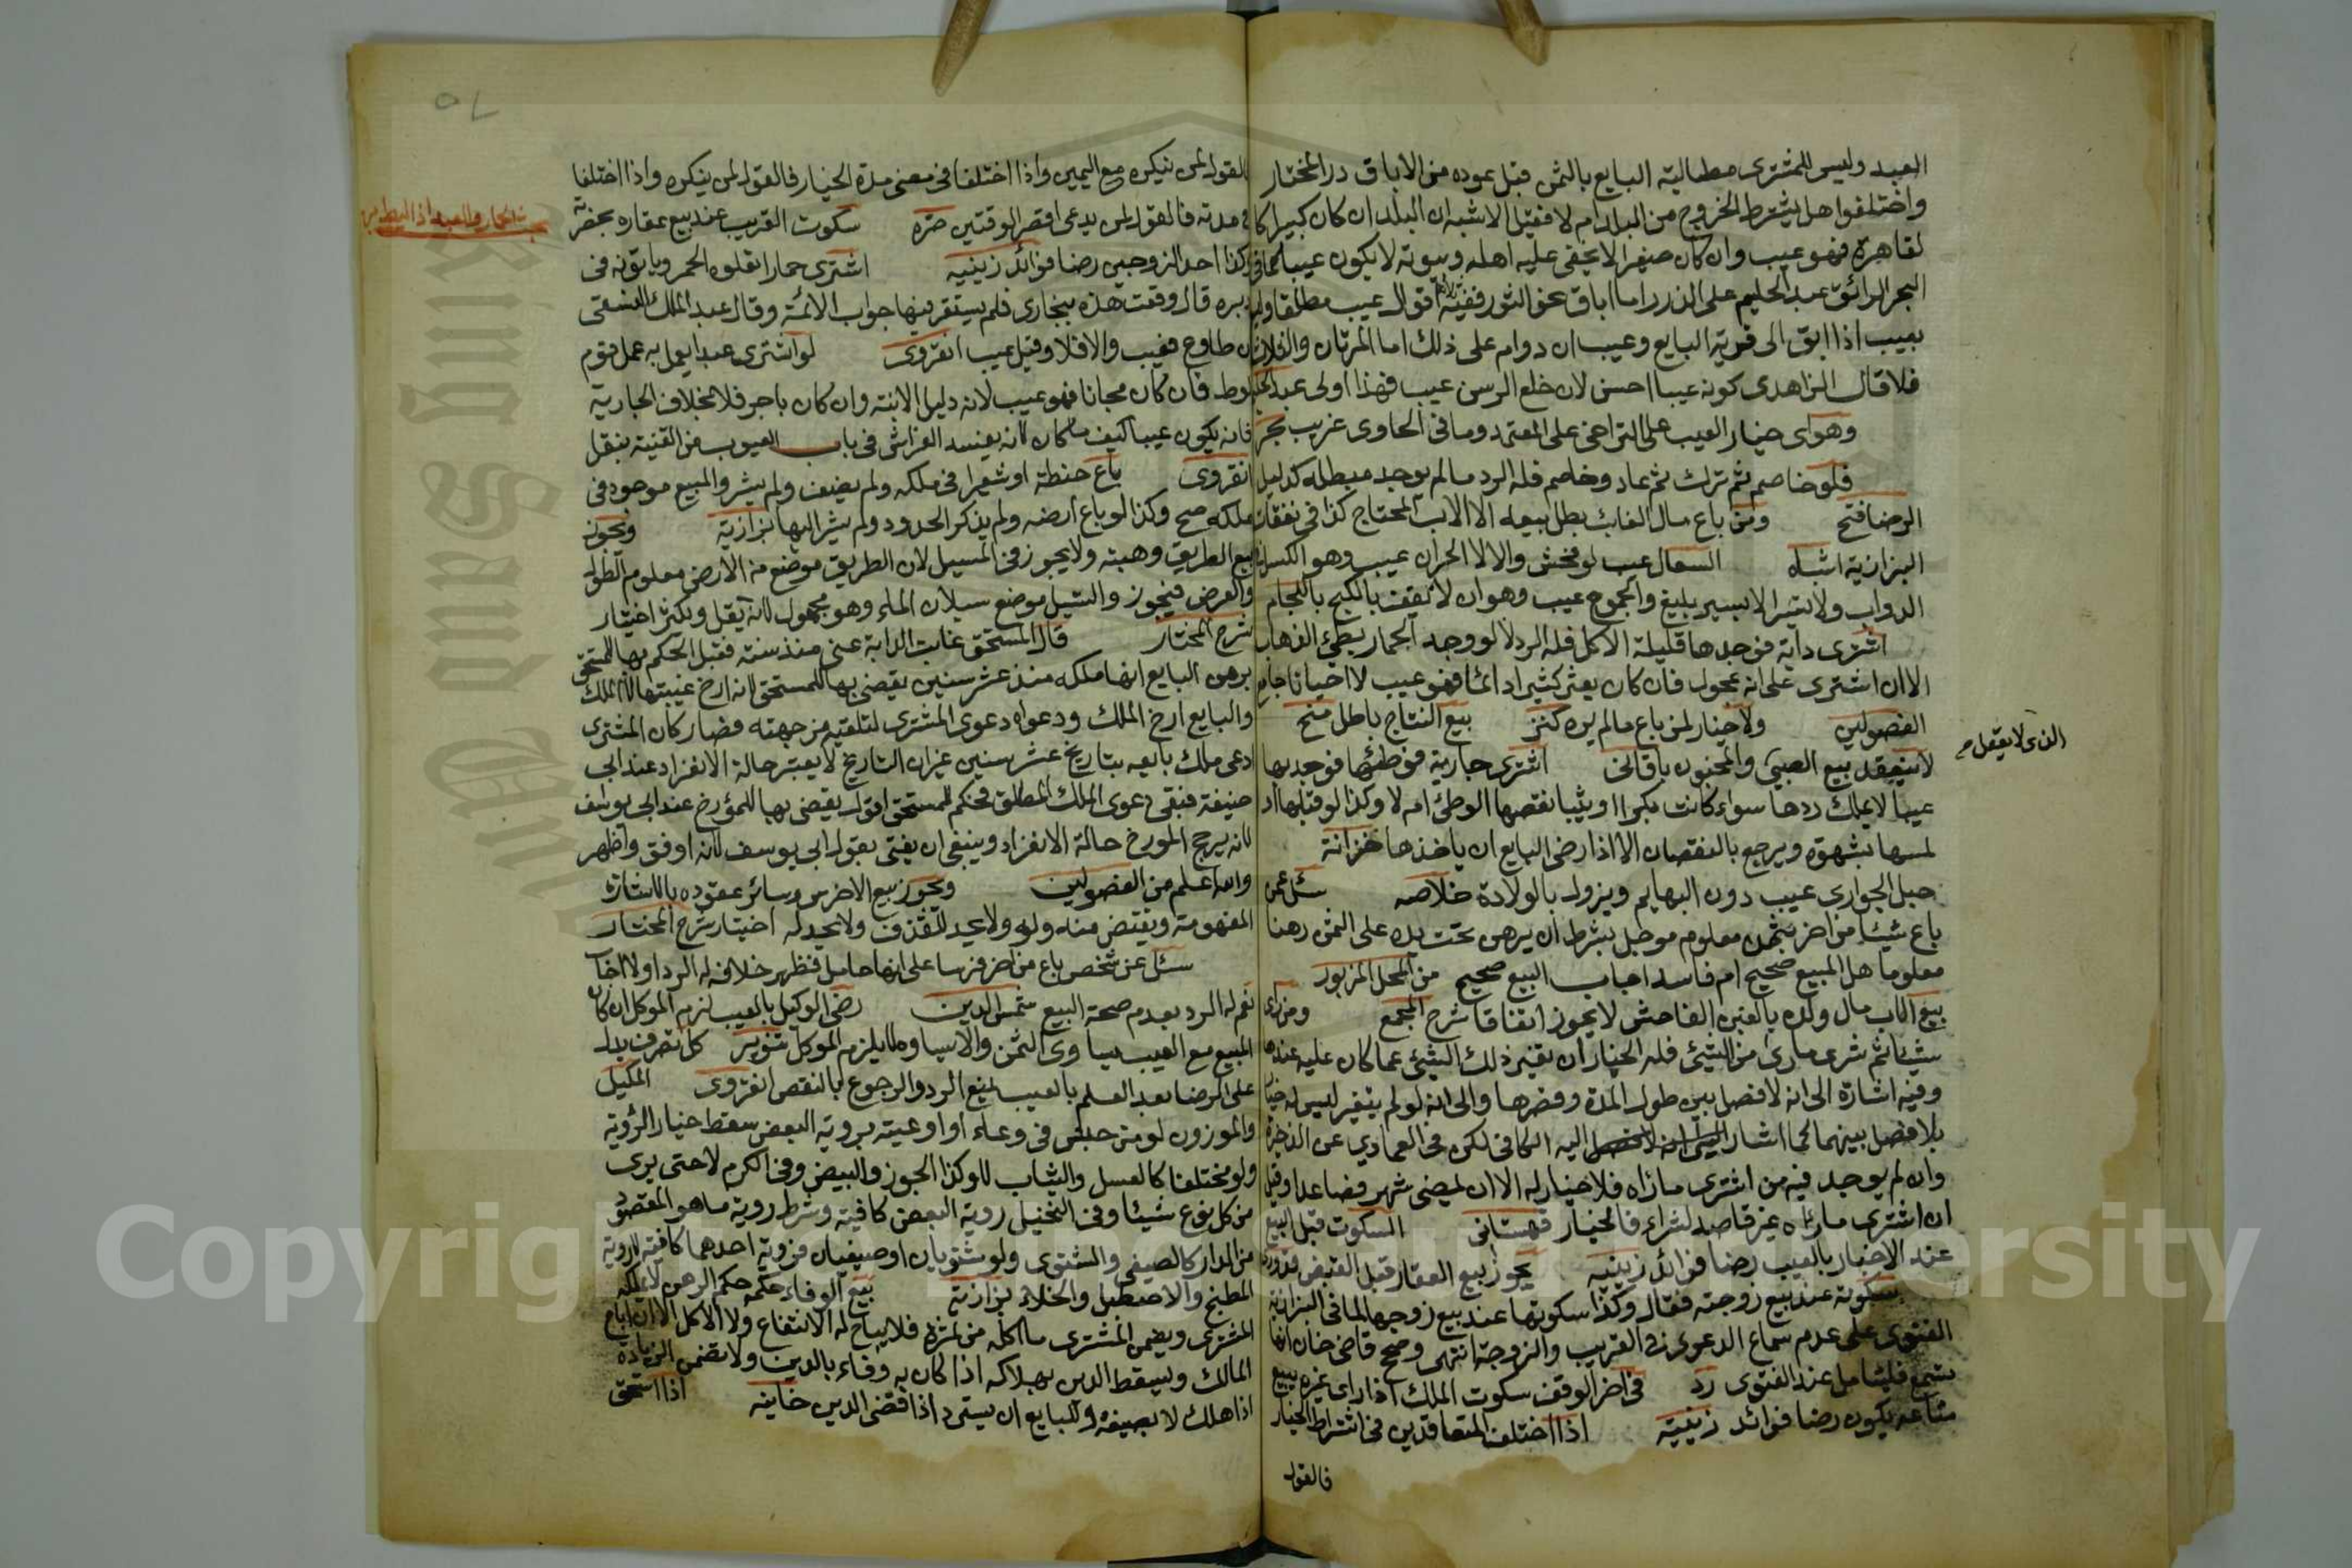 العبد وليس للمشترى مطالبة البايع بالثمن قبل عوده من الاباق درالمختار
واختلفوا هل يشترط الخروج من البلد ام لا فقيل الاشبه ان البلد ان كان كبيرا كا
لقاهرة فهو عيب وان كان صغيرا لا يخفى عليه اهله وبيوته لا يكون عيبا كما فى
البحر الرائق عبد الحليم على الدرر اما اباق الثور ففيه اقوال عيب مطلقا وليس
بعيب اذا ابق الى قرية البايع وعيب ان دوام على ذلك اما المرتان والثلاث
فلا قال الزاهدى كونه عيبا احسن لان خلع الرسن عيب فهذا اولى عبد الحليم
وهو اى خيار العيب على التراخى على المعتمد وما فى الحاوى غريب بحر
فلو خاصم ثم ترك ثم عاد وخاصم فله الرد ما لم يوجد مبطله كدليل
الرضا فتح ومن باع مال الغائب بطل بيعه الا الاب المحتاج كذا فى نفقات
البزازية اشباه السعال عيب لو فحش والا لا الحران عيب وهو الكسل فى
الدواب ولا يسير الا بسير بليغ والجموح عيب وهو ان لا تقف بالكبح باللجام
اشترى دابة فوجدها قليلة الاكل فله الرد لا لو وجد الحمار بطئ الذهاب
الا ان اشترى على انه عجول فان كان يعثر كثيرا دائما فهو عيب لا احيانا جامع
الفصولين ولا خيار لمن باع مالم يره كنز بيع النتاج باطل منح
لا ينعقد بيع الصبى والمجنون باقانى اشترى جارية فوطئها فوجد بها
الذى لا يعقل صح
عيبا لا يملك ردها سواء كانت بكرا او ثيبا نقصها الوطئ ام لا وكذا لو قبلها او
لمسها بشهوة ويرجع بالنقصان الا اذا رضى البايع ان ياخذها خزانة
حبل الجوارى عيب دون البهايم ويزول بالولادة خلاصه سئل عمن
باع شيئا من اخر بثمن معلوم موجل بشرط ان يرهن تحت يده على الثمن رهنا
معلوما هل المبيع صحيح ام فاسد اجاب البيع صحيح من المحل المزبور
بيع الاب مال ولده بالغبن الفاحش لا يجوز اتفاقا شرح المجمع ومن راى
شيئا ثم شرى ماراى من الشيئ فله الخيار ان تغير ذلك الشيئ عما كان عليه عندها
وفيه اشارة الى انه لا فصل بين طول المدة وقصرها والى انه لو لم يتغير ليس له خيار
بلا فصل بينهما كما اشار اليه الكافى لكن فى العمادي عن الذخيرة
وان لم يوجد فيه من اشترى ماراه فلا خيار له الا ان لمضى شهر فصاعدا وقيل
ان اشترى مارآه غير قاصد لشراء فالخيار قهستانى السكوت قبل البيع
عند الاخبار بالعيب رضا فوائد زينيه يجوز بيع العقار قبل القبض قدورى
سكوته عند بيع زوجته فقال وكذا سكوتها عند بيع زوجها لما فى البزازية
الفتوى على عدم سماع الدعوى فى القريب والزوجة انتهى وصح قاضى خان انها
تسمع فليتامل عند الفتوى رد فى اخر الوقف سكوت الملك اذا راى غيره يبيع
متاعه يكون رضا فوائد زينية اذا اختلف المتعاقدين فى اشتراط الخيار
فالقول
فالقول لمن ينكره مع اليمين واذا اختلفا فى معنى مدة الخيار فالقول لمن ينكره واذا اختلفا
فى مدته فالقول لمن يدعى اقصر الوقتين صره سكوت القريب عند بيع عقاره بحضرته
وكذا احد الزوجين رضا فوائد زينيه اشترى حمارا تعلوه الحمر وياتونه فى
دبره قال وقعت هذه ببخارى فلم يستقر فيها جواب الائمة وقال عبد الملك النسفى
ان طاوع فعيب والا فلا وقيل عيب انقروى لو اشترى عبدا يعمل به عمل قوم
لوط فان كان مجانا فهو عيب لانه دليل الابنة وان كان باجر فلا بخلاف الجارية
فانه يكون عيبا كيف ما كان لانه يفسد الفراش فى باب العيوب من القنية بنقل
انقروى باع حنطة او شعيرا فى ملكه ولم يضف ولم يشر والمبيع موجود فى
ملكه صح وكذا لو باع ارضه ولم يذكر الحدود ولم يشر اليها بزازية ويجوز
بيع الطريق وهبته ولا يجوز فى المسيل لان الطريق موضع من الارض معلوم الطول
والعرض فيجوز والمسيل موضع سيلان الماء وهو مجهول لانه يقل ويكثر اختيار
شرح المختار قال المستحق غابت الدابة عنى منذ سنة فقبل الحكم بها للمستحق
برهن البايع انها ملكه منذ عشر سنين يقضى بها للمستحق لانه ارخ غيبتها لا الملك
والبايع ارخ الملك ودعواه دعوى المشترى لتلقيه من جهته فصار كان المشترى
ادعى ملك بايعه بتاريخ عشر سنين غير ان التاريخ لا يعتبر حالة الانفراد عند ابى
حنيفة فبقى دعوى الملك المطلق فحكم للمستحق اقول يقضى بها للمؤرخ عند ابى يوسف
لانه يرجح المورخ حالة الانفراد وينبغى ان يفتى بقول ابى يوسف لانه اوفق واظهر
والله اعلم من الفصولين ويجوز بيع الاخرس وسائر عقوده بالاشارة
المفهومة ويقتص منه وله ولا يحد للقذف ولا يحد له اختيار شرح المختار
سئل عن شخص باع من اخر فرسا على انها حامل فظهر خلافه له الرد اولا اجاب
نعم له الرد بعدم صحة البيع شمس الدين رضى الوكيل بالعيب لزم الموكل ان كان
المبيع مع العيب يساوى الثمن والا يساوه لا يلزم الموكل تنوير كل تصرف يدل
على الرضا بعد العلم بالعيب يمنع الرد والرجوع بالنقص انقروى المكيل
والموزون لو من جنس فى وعاء او اوعية برويه البعض سقط خيار الرؤية
ولو مختلفا كالعسل والثياب لا وكذا الجوز والبيض وفى الكرم لا حتى يرى
من كل نوع شيئا وفى النخيل روية البعض كافية وشرط روية ما هو المقصود
من الدار كالصيفى والمشتوى ولو شتويان او صيفيان فروية احدهما كافية لا روية
المطبخ والاصطبل والخلاء بزازية بيع الوفاء حكمه حكم الرهن لا يملكه
المشترى ويضمن المشترى ما اكله من ثمره فلا يباح له الانتفاع ولا الاكل الا ان اباح
المالك ويسقط الدين بهلاكه اذا كان به وفاء بالدين ولا تضمن الزيادة
اذا هلك لا بصنيعه وللبايع ان يسترد اذا قضى الدين خانيه اذا استحق
Copyright © King Saud University